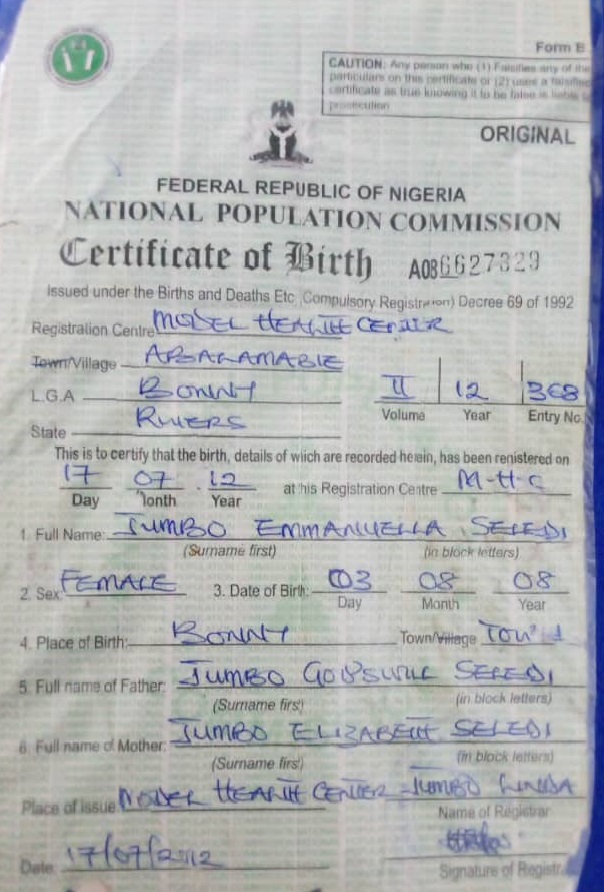 Form B
CAUTION: Any person who (1) Falsifies any of the
particulars on this certificate or (2) uses a falsified
certificate as true knowing it to be false is liable to
prosecution
ORIGINAL
FEDERAL REPUBLIC OF NIGERIA
NATIONAL POPULATION COMMISSION
Certificate of Birth A086627329
Issued under the Births and Deaths Etc, (Compulsory Registration) Decree 69 of 1992
Registration Centre MODEL HEALTH CENTER
Town/Village ABALAMABIE
L.G.A BONNY
II 12 368
Volume Year Entry No.
State RIVERS
This is to certify that the birth, details of which are recorded herein, has been registered on
17 07 12 at this Registration Centre M-H-C
Day Month Year
1. Full Name: JUMBO EMMANUELLA SELEDI
(Surname first) (in block letters)
2. Sex FEMALE 3. Date of Birth: 03 08 08
Day Month Year
4. Place of Birth: BONNY Town/Village
5. Full name of Father: JUMBO SELEDI
(Surname first) (in block letters)
6. Full name of Mother: JUMBO ELIZABETH SELEDI
(Surname first) (in block letters)
Place of issue MODEL HEALTH CENTER JUMBO LINDA
Name of Registrar
Date 17/07/2012
Signature of Registr